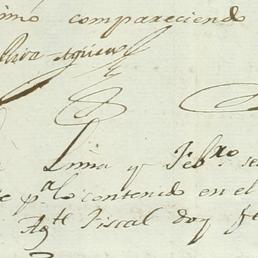 imo compareciendo
Riva Agüero
Lima y Feb.ro se
e p.a lo contenido en el
Ag.te Fiscal doy fe